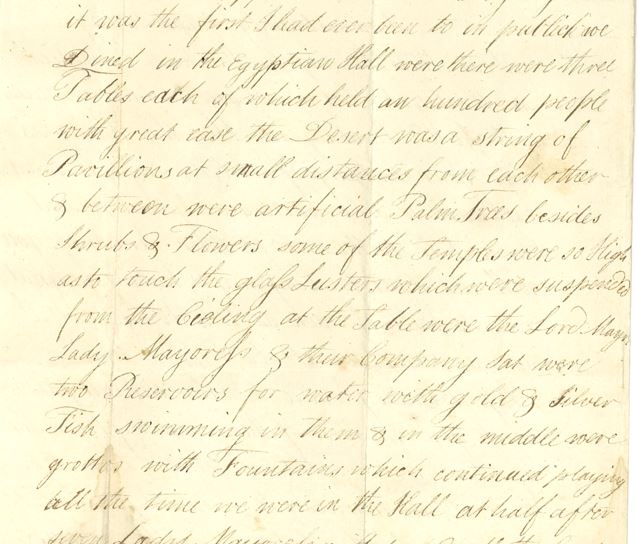 it was the first I had ever been to in publick we
Dined in the Egyptian Hall were there were three
Tables each of which held an hundred people
with great ease the Desert was a string of
Pavillions at small distances from each other
& between were artificial Palm Trees besides
Shrubs & Flowers some of the Temples were so High
as to touch the glass Lusters which were suspended
from the Cieling at the Table were the Lord Mayr
Lady Mayoress & their Company sat were
two Reservoirs for water with gold & Silver
Fish swimming in them & in the middle were
grottos with Fountains which continued playing
all the time we were in the Hall at half after
seven Lady Mayoress